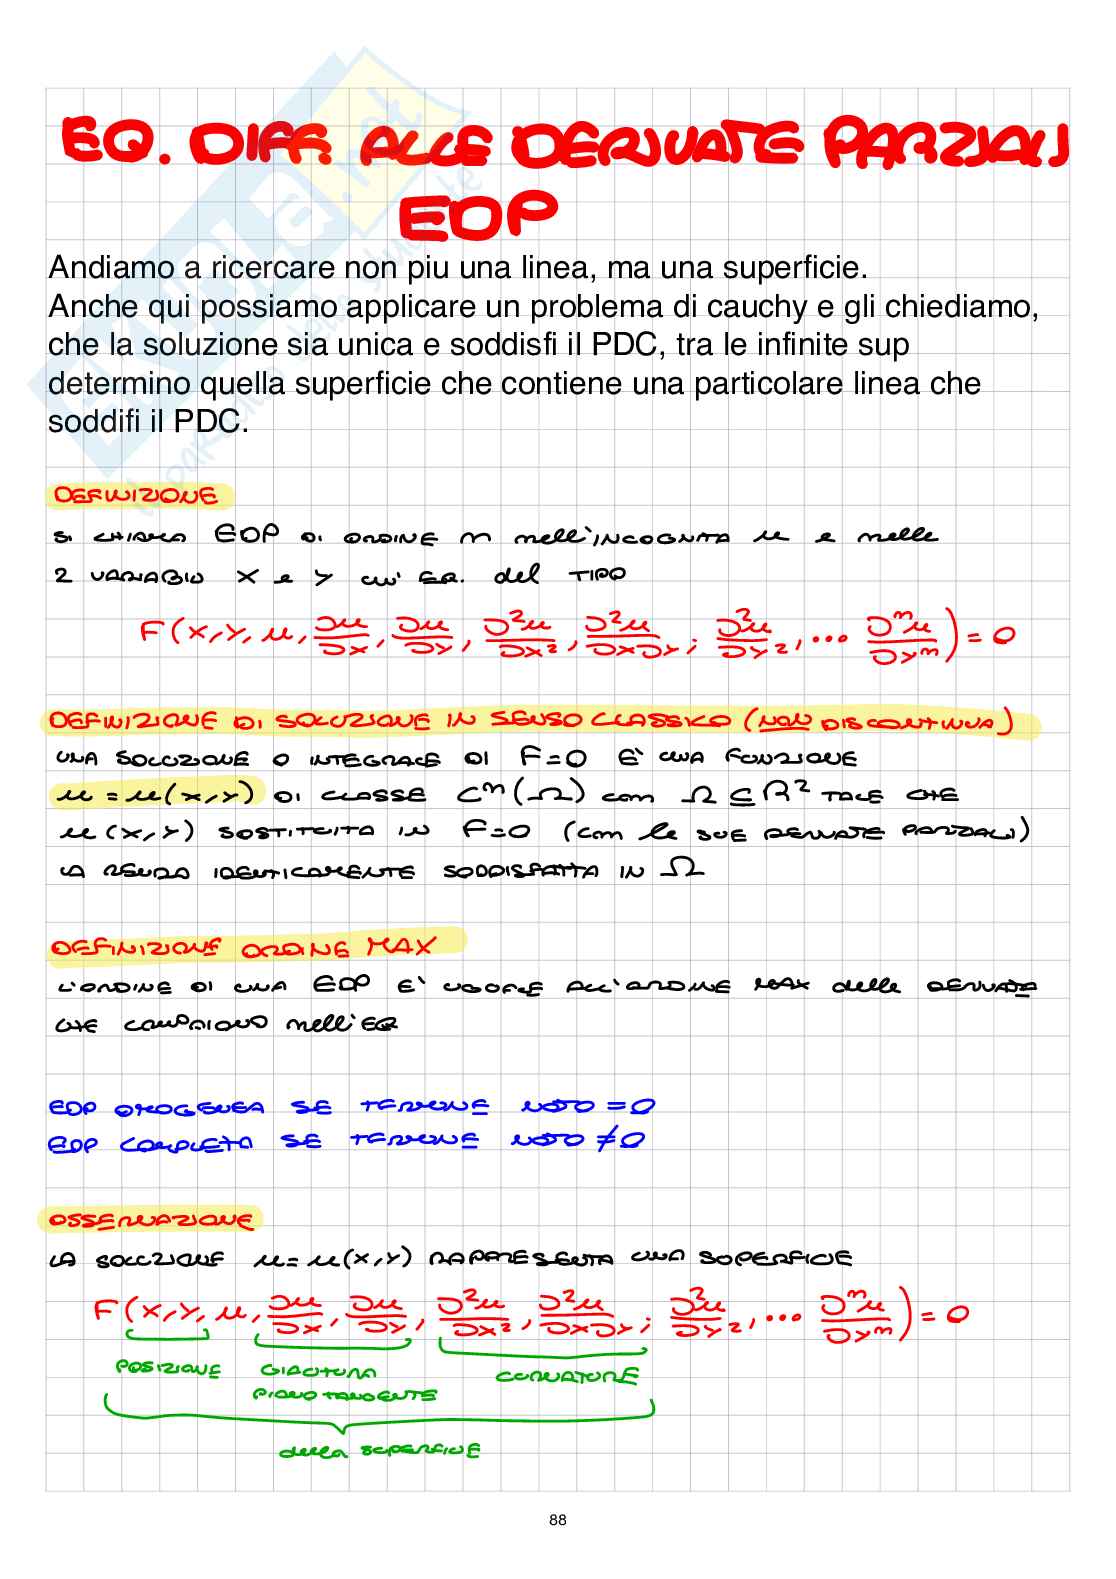 EQ. DIFF. ALLE DERIVATE PARZIALI
EDP
Andiamo a ricercare non piu una linea, ma una superficie.
Anche qui possiamo applicare un problema di cauchy e gli chiediamo,
che la soluzione sia unica e soddisfi il PDC, tra le infinite sup
determino quella superficie che contiene una particolare linea che
soddifi il PDC.
DEFINIZIONE
SI CHIAMA EDP DI ORDINE m nell'INCOGNITA u e nelle
2 VARIABILI X e Y UN' EQ. del TIPO
F(x,y,u,∂u/∂x,∂u/∂y,∂²u/∂x²,∂²u/∂x∂y;∂²u/∂y²,...∂ᵐu/∂yᵐ)=0
DEFINIZIONE DI SOLUZIONE IN SENSO CLASSICO (NON DISCONTINUA)
UNA SOLUZIONE O INTEGRALE DI F=0 E' UNA FUNZIONE
u=u(x,y) DI CLASSE Cᵐ(Ω) con Ω⊆R² TALE CHE
u(x,y) SOSTITUITA IN F=0 (con le SUE DERIVATE PARZIALI)
LA RENDA IDENTICAMENTE SODDISFATTA IN Ω
DEFINIZIONE ORDINE MAX
L'ORDINE DI UNA EDP E' UGUALE ALL'ORDINE MAX delle DERIVATE
CHE COMPAIONO nell'EQ
EDP OMOGENEA SE TERMINE NOTO =0
EDP COMPLETA SE TERMINE NOTO ≠0
OSSERVAZIONE
LA SOLUZIONE u=u(x,y) RAPPRESENTA UNA SUPERFICIE
F(x,y,u,∂u/∂x,∂u/∂y,∂²u/∂x²,∂²u/∂x∂y;∂²u/∂y²,...∂ᵐu/∂yᵐ)=0
POSIZIONE GIACITURA CURVATURE
PIANO TANGENTE
della SUPERFICIE
88